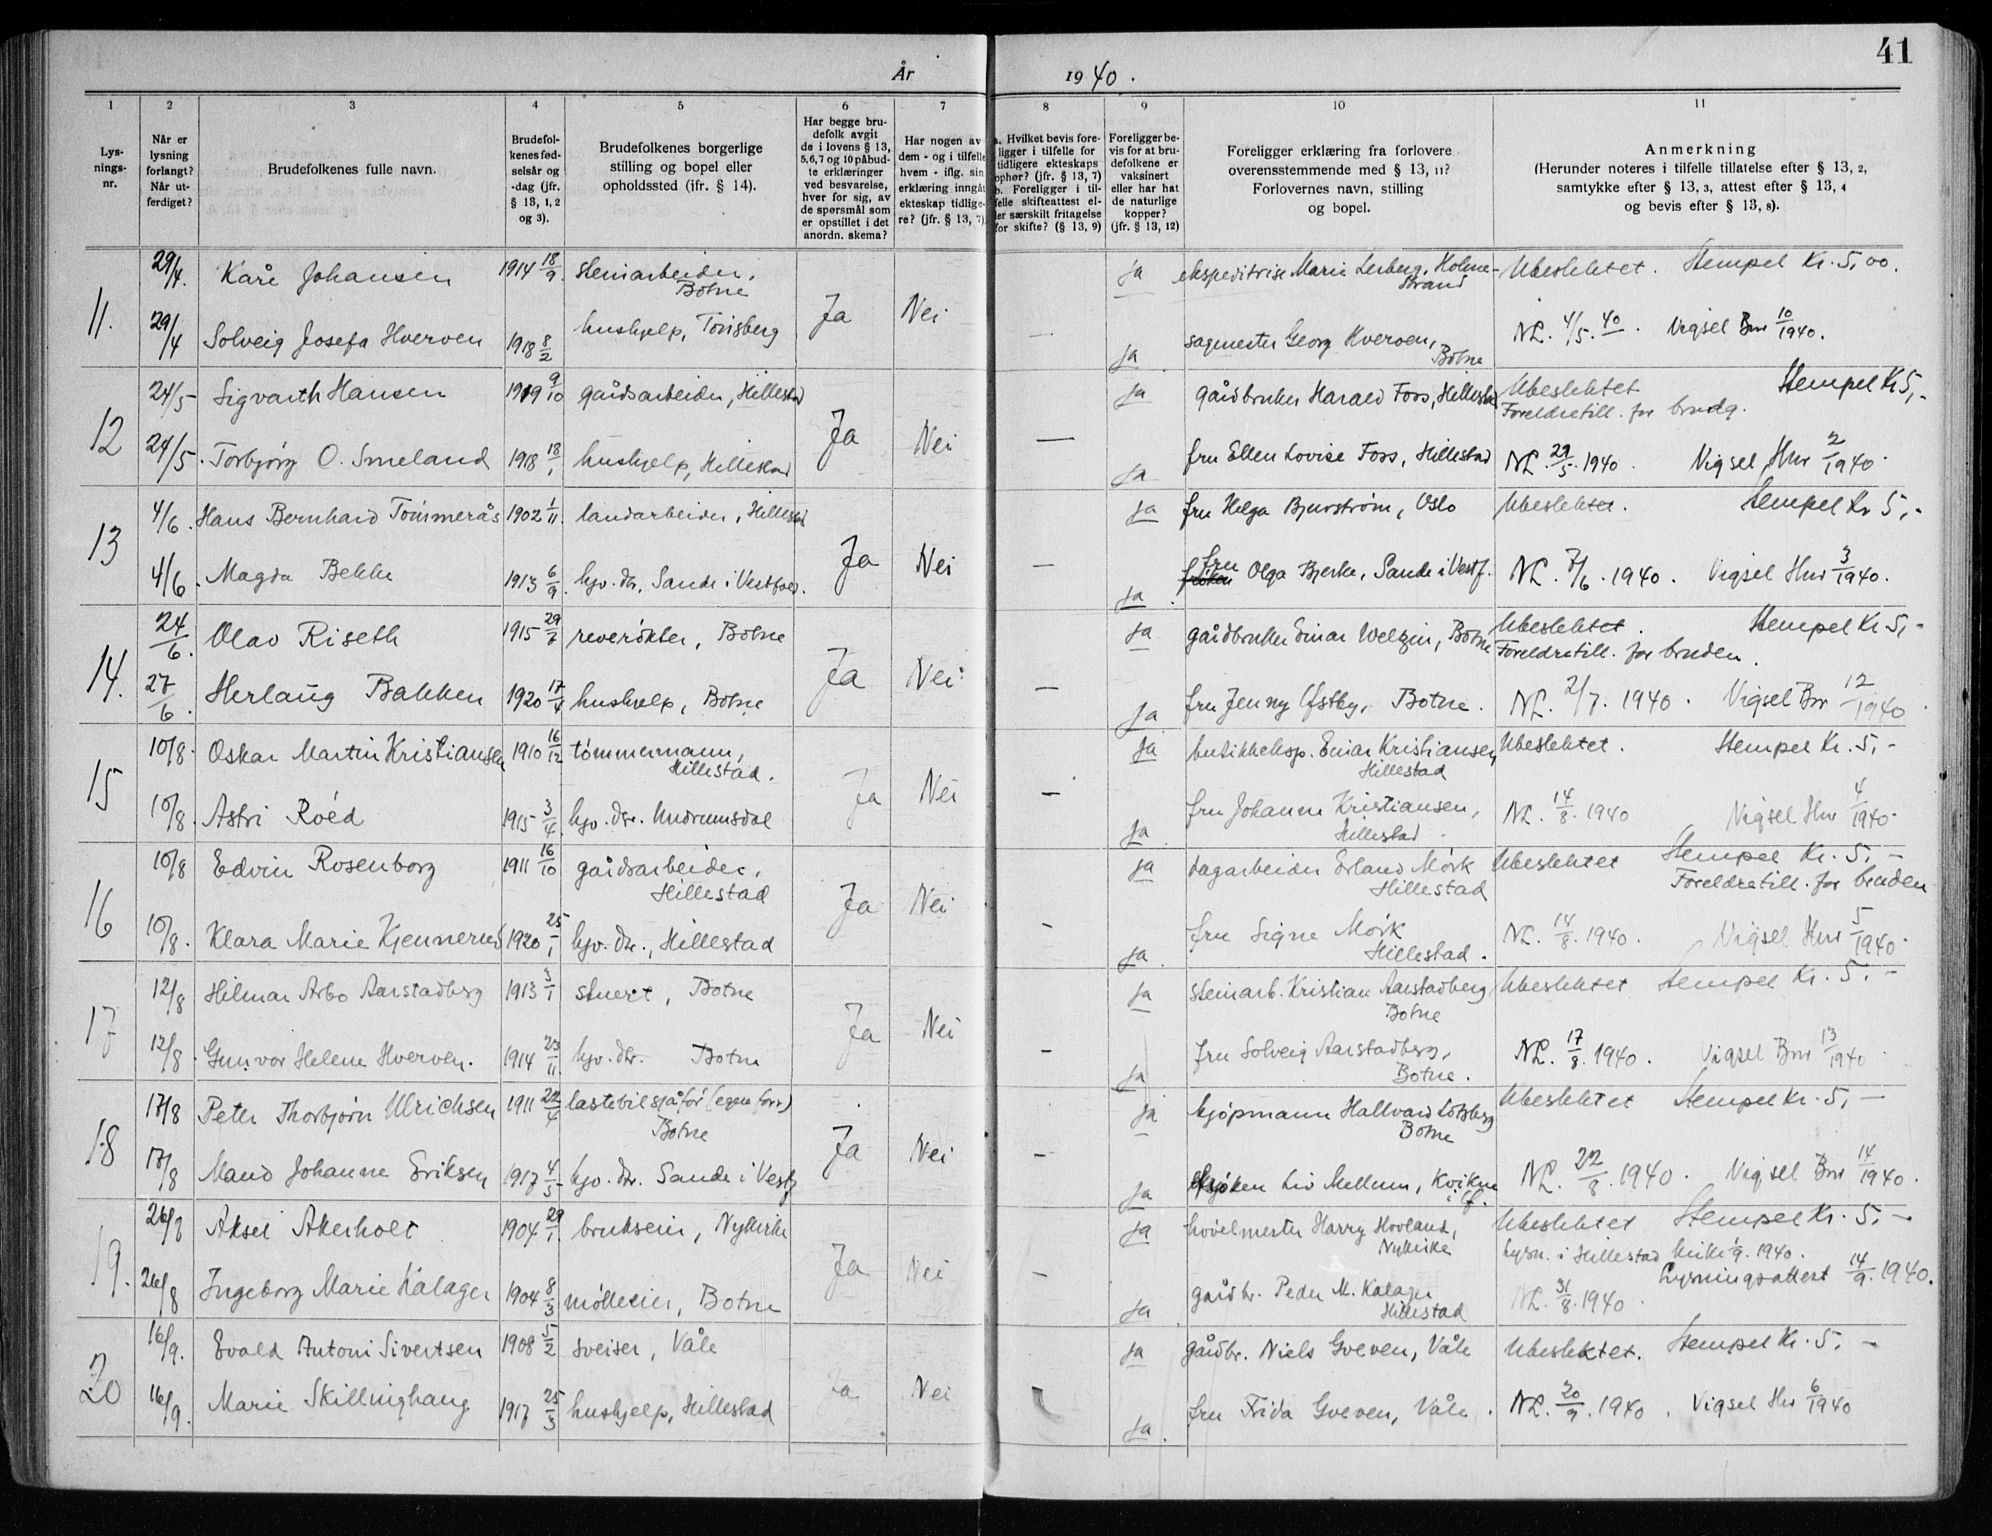 41
År 1940.
1 2 3 4 5 6 7 8 9 10 11
Lys-
nings-
nr.
Når er
lysning
forlangt?
Når ut-
ferdiget?
Brudefolkenes fulle navn.
Brudefol-
kenes fød-
selsår og
-dag (jfr.
§ 13, 1, 2
og 3).
Brudefolkenes borgerlige
stilling og bopel eller
opholdssted (jfr. § 14).
Har begge bru-
defolk avgit
de i lovens § 13,
5, 6, 7 og 10 påbud-
te erklæringer
ved besvarelse,
hver for sig, av
de spørsmål som
er opstillet i det
anordn. skema?
Har nogen av
dem - og i tilfelle
hvem - iflg. sin
erklæring inngåt
ekteskap tidlige-
re? (jfr. § 13, 7)
a. Hvilket bevis fore-
ligger i tilfelle for
tidligere ekteskaps
ophør? (jfr. § 13, 7)
b. Foreligger i til-
felle skifteattest el-
ler særskilt fritagelse
for skifte? (§ 13, 9)
Foreligger be-
vis for at bru-
defolkene er
vaksinert
eller har hat
de naturlige
kopper?
(jfr. § 13, 12)
Foreligger erklæring fra forlovere
overensstemmende med § 13, 11?
Forlovernes navn, stilling
og bopel.
Anmerkning
(Herunder noteres i tilfelle tillatelse efter § 13, 2,
samtykke efter § 13, 3, attest efter § 13, 4
og bevis efter § 13, 8).
11. 29/4. Kåre Johansen 1914 18/9. steinarbeider, Botne Ja Nei ja ekspeditrise Marie Lerberg, Holme-strand Ubeslektet. Stempel Kr. 5,00.
29/4 Solveig Josefa Hverven 1918 8/2 hushjelp, Tønsberg — ja sagmester Georg Hverven, Botne NL. 4/5. 40. Vigsel Bnr 10/1940.
12 24/5 Sigvarth Hansen 1919 9/10 gårdsarbeider, Hillestad Ja Nei ja gårdbruker Harald Foss, Hillestad Ubeslektet Stempel Kr 5,-
Foreldretill. for brudg.
24/5. Torbjørg O. Smeland 1918 18/1 hushjelp, Hillestad — ja fru Ellen Lovise Foss, Hillestad NL. 29/5. 1940. Vigsel Hnr 2/1940.
13 4/6. Hans Bernhard Tømmerås 1902 1/11. landarbeider, Hillestad Ja Nei ja fru Helga Bjurstrøm, Oslo Ubeslektet. Stempel Kr 5,-
4/6. Magda Bekke 1913 6/9. hjv. dtr. Sande i Vestfold. — ja. fru Olga Bjerke, Sande i Vestf. NL. 7/6. 1940. Vigsel Hnr 3/1940.
14. 24/6. Olav Riseth 1915 29/7 reverøkter, Botne Ja Nei ja gårdbruker Einar Welzin, Botne Ubeslektet. Stempel Kr 5,-
Foreldretill. for bruden.
27/6. Herlaug Bakken 1920 17/4 hushjelp, Botne — ja. fru Jenny Østby, Botne. NL. 2/7. 1940. Vigsel Bnr 12/1940
15 10/8. Oskar Martin Kristiansen 1910 16/12 tømmermann, Hillestad. Ja Nei ja butikkeksp. Einar Kristiansen, Hillestad Ubeslektet. Stempel Kr. 5,-
10/8. Astri Röed 1915 3/4. hjv. dtr. Undrumsdal — ja fru Johanne Kristiansen, Hillestad. NL. 14/8. 1940 Vigsel Hnr 4/1940.
16 10/8 Edvin Rosenborg 1911 16/10 gårdsarbeider, Hillestad Ja Nei ja dagarbeider Erland Mørk Hillestad Ubeslektet Stempel Kr. 5,-
Foreldretill. for bruden
10/8. Klara Marie Kjennerud 1920 25/1 hjv. dtr., Hillestad — ja. fru Signe Mørk Hillestad. NL. 14/8. 1940. Vigsel Hnr 5/1940.
17 12/8 Hilmar Arbo Aarstadberg 1913 3/1 stuert, Botne Ja Nei ja steinarb. Kristian Aarstadberg Botne Ubeslektet Stempel Kr. 5,-
12/8. Gunvor Helene Hverven. 1914 23/11 hjv. dtr. Botne — ja fru Solveig Aarstadberg, Botne. NL. 17/8. 1940. Vigsel Bnr 13/1940
18 17/8 Peter Thorbjørn Ulrichsen 1911 22/4 lastebilsjåfør (egen forr.) Botne Ja Nei ja kjøpmann Hallvard Botne Ubeslektet Stempel Kr. 5,-
17/8 Maud Johanne Eriksen 1917 4/5. hjv. dtr. Sande i Vestf — ja frøken Liv Mellum, Kvikne NL. 22/8. 1940. Vigsel Bnr 14/1940.
19. 26/8 Aksel Akerholt 1904 29/1. brukseier, Nykirke Ja Nei ja høvelmester Harry Hovland, Nykirke Ubeslektet Stempel Kr. 5,-
Lysn. i Hillestad kirke 1/9. 1940.
Lysningsattest 14/9. 1940.
26/8 Ingeborg Marie Kålager 1904 8/3 mølleeier, Botne — ja gårdbr. Peder M. Kalager Hillestad NL. 31/8. 1940.
20 16/9. Evald Antoni Sivertsen 1908 5/2 sveiser, Våle Ja Nei ja gårdbr. Niels Greven, Våle Ubeslektet. Stempel Kr. 5,-
16/9. Marie Skillinghaug 1917 25/3 hushjelp, Hillestad ja. fru Frida Greven, Våle. NL. 20/9. 1940. Vigsel Hnr 6/1940